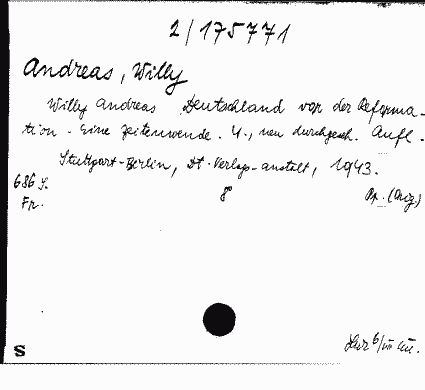 2/175771
Andreas, Willy
Willy Andreas Deutschland vor der Reforma-
tion. Eine Zeitenwende. 4., neu durchges. Aufl.
Stuttgart-Berlin, Dt. Verlags-anstalt, 1943.
686 S. 8° Pp. (Orig.)
Fr.
S